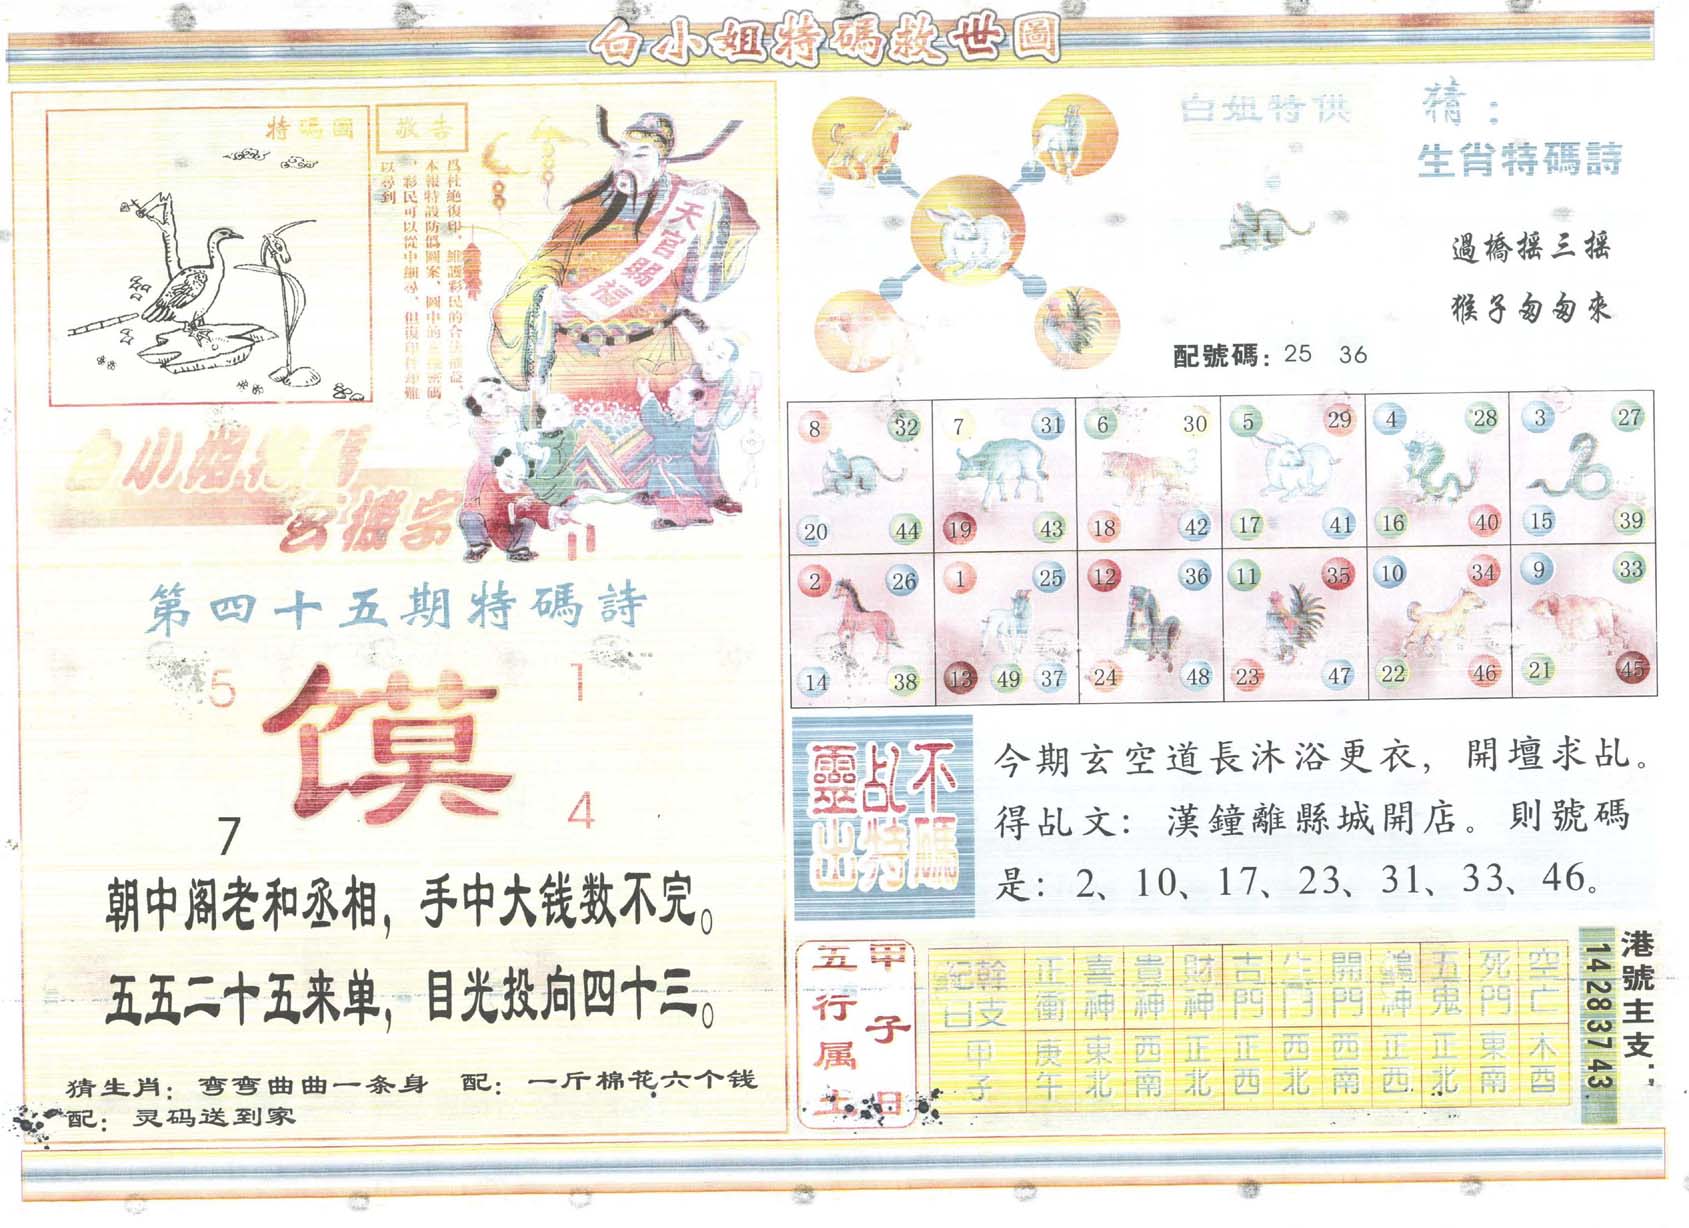 白小姐特碼救世圖
特碼圖
敬告
爲杜絶復印，維護彩民的合
本報特設防僞圖案，圖中的 密碼
，彩民可以從中細尋，但復印件却難
以尋到
天官賜福
白小姐特碼
玄機字
第四十五期特碼詩
5 1
馍
7 4
朝中阁老和丞相，手中大钱数不完。
五五二十五来单，目光投向四十三。
猜生肖：弯弯曲曲一条身 配：一斤棉花六个钱
配：灵码送到家
白姐特供
配號碼：25 36
猜：
生肖特碼詩
過橋摇三摇
猴子匆匆來
8 32 7 31 6 30 5 29 4 28 3 27
20 44 19 43 18 42 17 41 16 40 15 39
2 26 1 25 12 36 11 35 10 34 9 33
14 38 13 49 37 24 48 23 47 22 46 21 45
不乩靈
碼特出
今期玄空道長沐浴更衣，開壇求乩。
得乩文：漢鐘離縣城開店。則號碼
是：2、10、17、23、31、33、46。
甲子日
五行属土
幹支 紀日 正衝 喜神 貴神 財神 古門 生門 開門 鶴神 五鬼 死門 空亡
甲子 庚午 東北 西南 正北 正西 西北 西南 正西 正北 東南 木酉
港號主支：
14 28 37 43